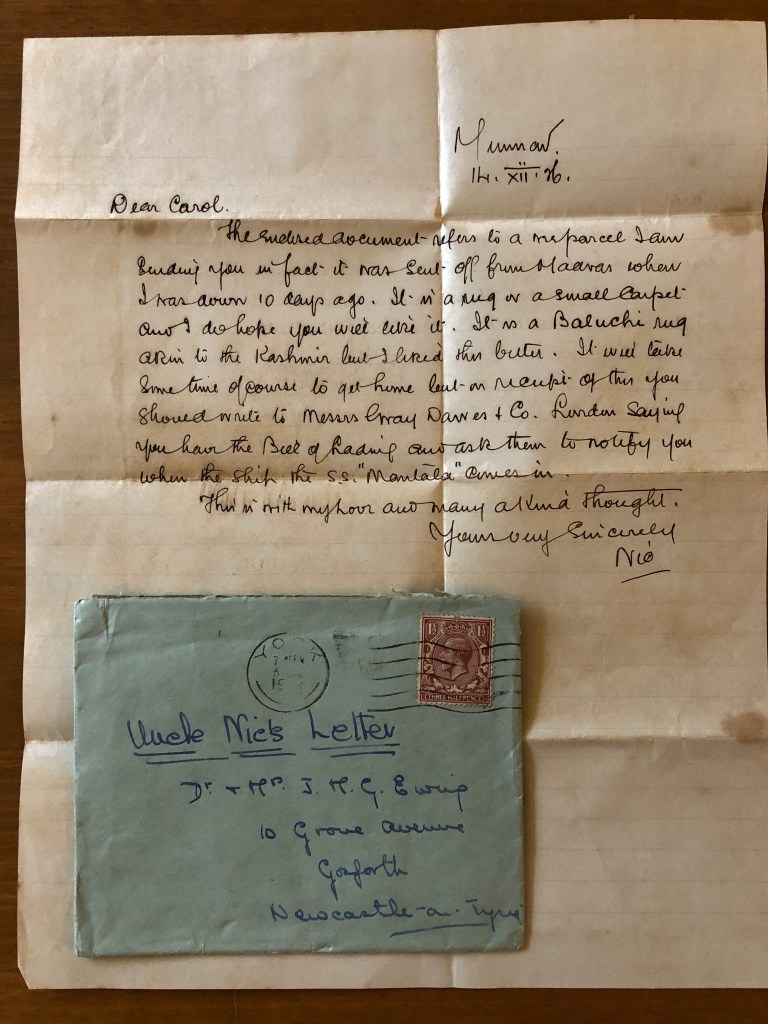 Munnar.
14. XII. 26.
Dear Carol.
The enclosed document refers to a parcel I am
sending you in fact it was sent off from Madras when
I was down 10 days ago. It is a rug or a small carpet
and I do hope you will like it. It is a Baluchi rug
akin to the Kashmir but I liked this better. It will take
some time of course to get home but on receipt of this you
should write to Messrs Gray Dawes & Co. London saying
you have the Bill of Lading and ask them to notify you
when the ship the S.S. "Mantola" comes in.
This is with my love and many a kind thought.
Yours very Sincerely
Nic
YORK
7
5
19
1½ 1½
THREE HALFPENCE
Uncle Nic's Letter
Dr. + Mrs. J. M. G. Ewing
10 Grove avenue
Gosforth
Newcastle-on-Tyne